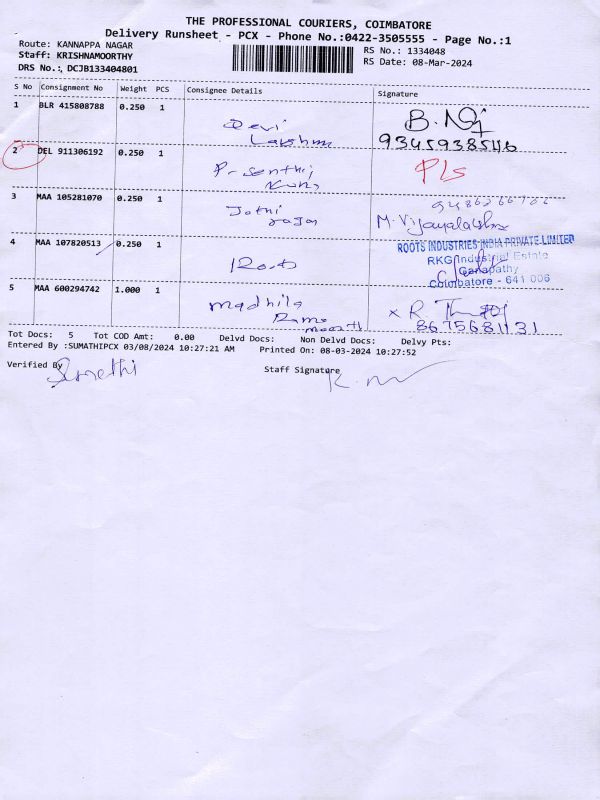 THE PROFESSIONAL COURIERS, COIMBATORE
Delivery Runsheet - PCX - Phone No.:0422-3505555 - Page No.:1
Route: KANNAPPA NAGAR
RS No.: 1334048
Staff: KRISHNAMOORTHY
RS Date: 08-Mar-2024
DRS No.: DCJB133404801
S No Consignment No Weight PCS Consignee Details Signature
1 BLR 415808788 0.250 1
Devi
Lakshmi
B.
9345938546
2 DEL 911306192 0.250 1
P. Senthil
Pls
3 MAA 105281070 0.250 1
Jothi
rajan
M. Vijayalakshmi
4 MAA 107820513 0.250 1
Roots
ROOTS INDUSTRIES INDIA PRIVATE LIMITED
RKG Industrial Estate
Ganapathy
Coimbatore - 641 006
5 MAA 600294742 1.000 1
madhila
x R.
8675681131
Tot Docs: 5 Tot COD Amt: 0.00 Delvd Docs: Non Delvd Docs: Delvy Pts:
Entered By :SUMATHIPCX 03/08/2024 10:27:21 AM Printed On: 08-03-2024 10:27:52
Verified By Sumathi
Staff Signature